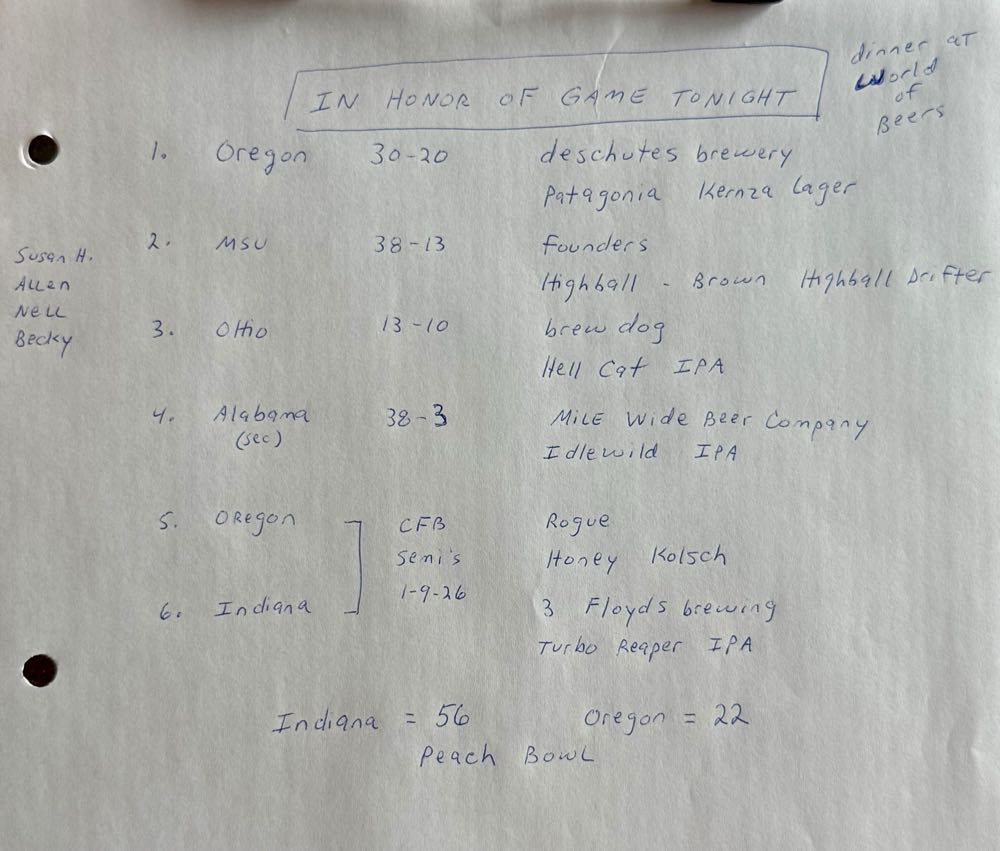 dinner at
World
of
Beers
IN HONOR OF GAME TONIGHT
1. Oregon 30-20 deschutes brewery
Patagonia Kernza Lager
2. MSU 38-13 Founders
Highball - Brown Highball Drifter
Susan H.
Allen
Nell
Becky
3. OHio 13-10 brew dog
Hell Cat IPA
4. Alabama 38-3 Mile Wide Beer Company
(sec) Idlewild IPA
5. Oregon CFB Rogue
Semi's Honey Kolsch
1-9-26
6. Indiana 3 Floyds brewing
Turbo Reaper IPA
Indiana = 56 Oregon = 22
Peach Bowl